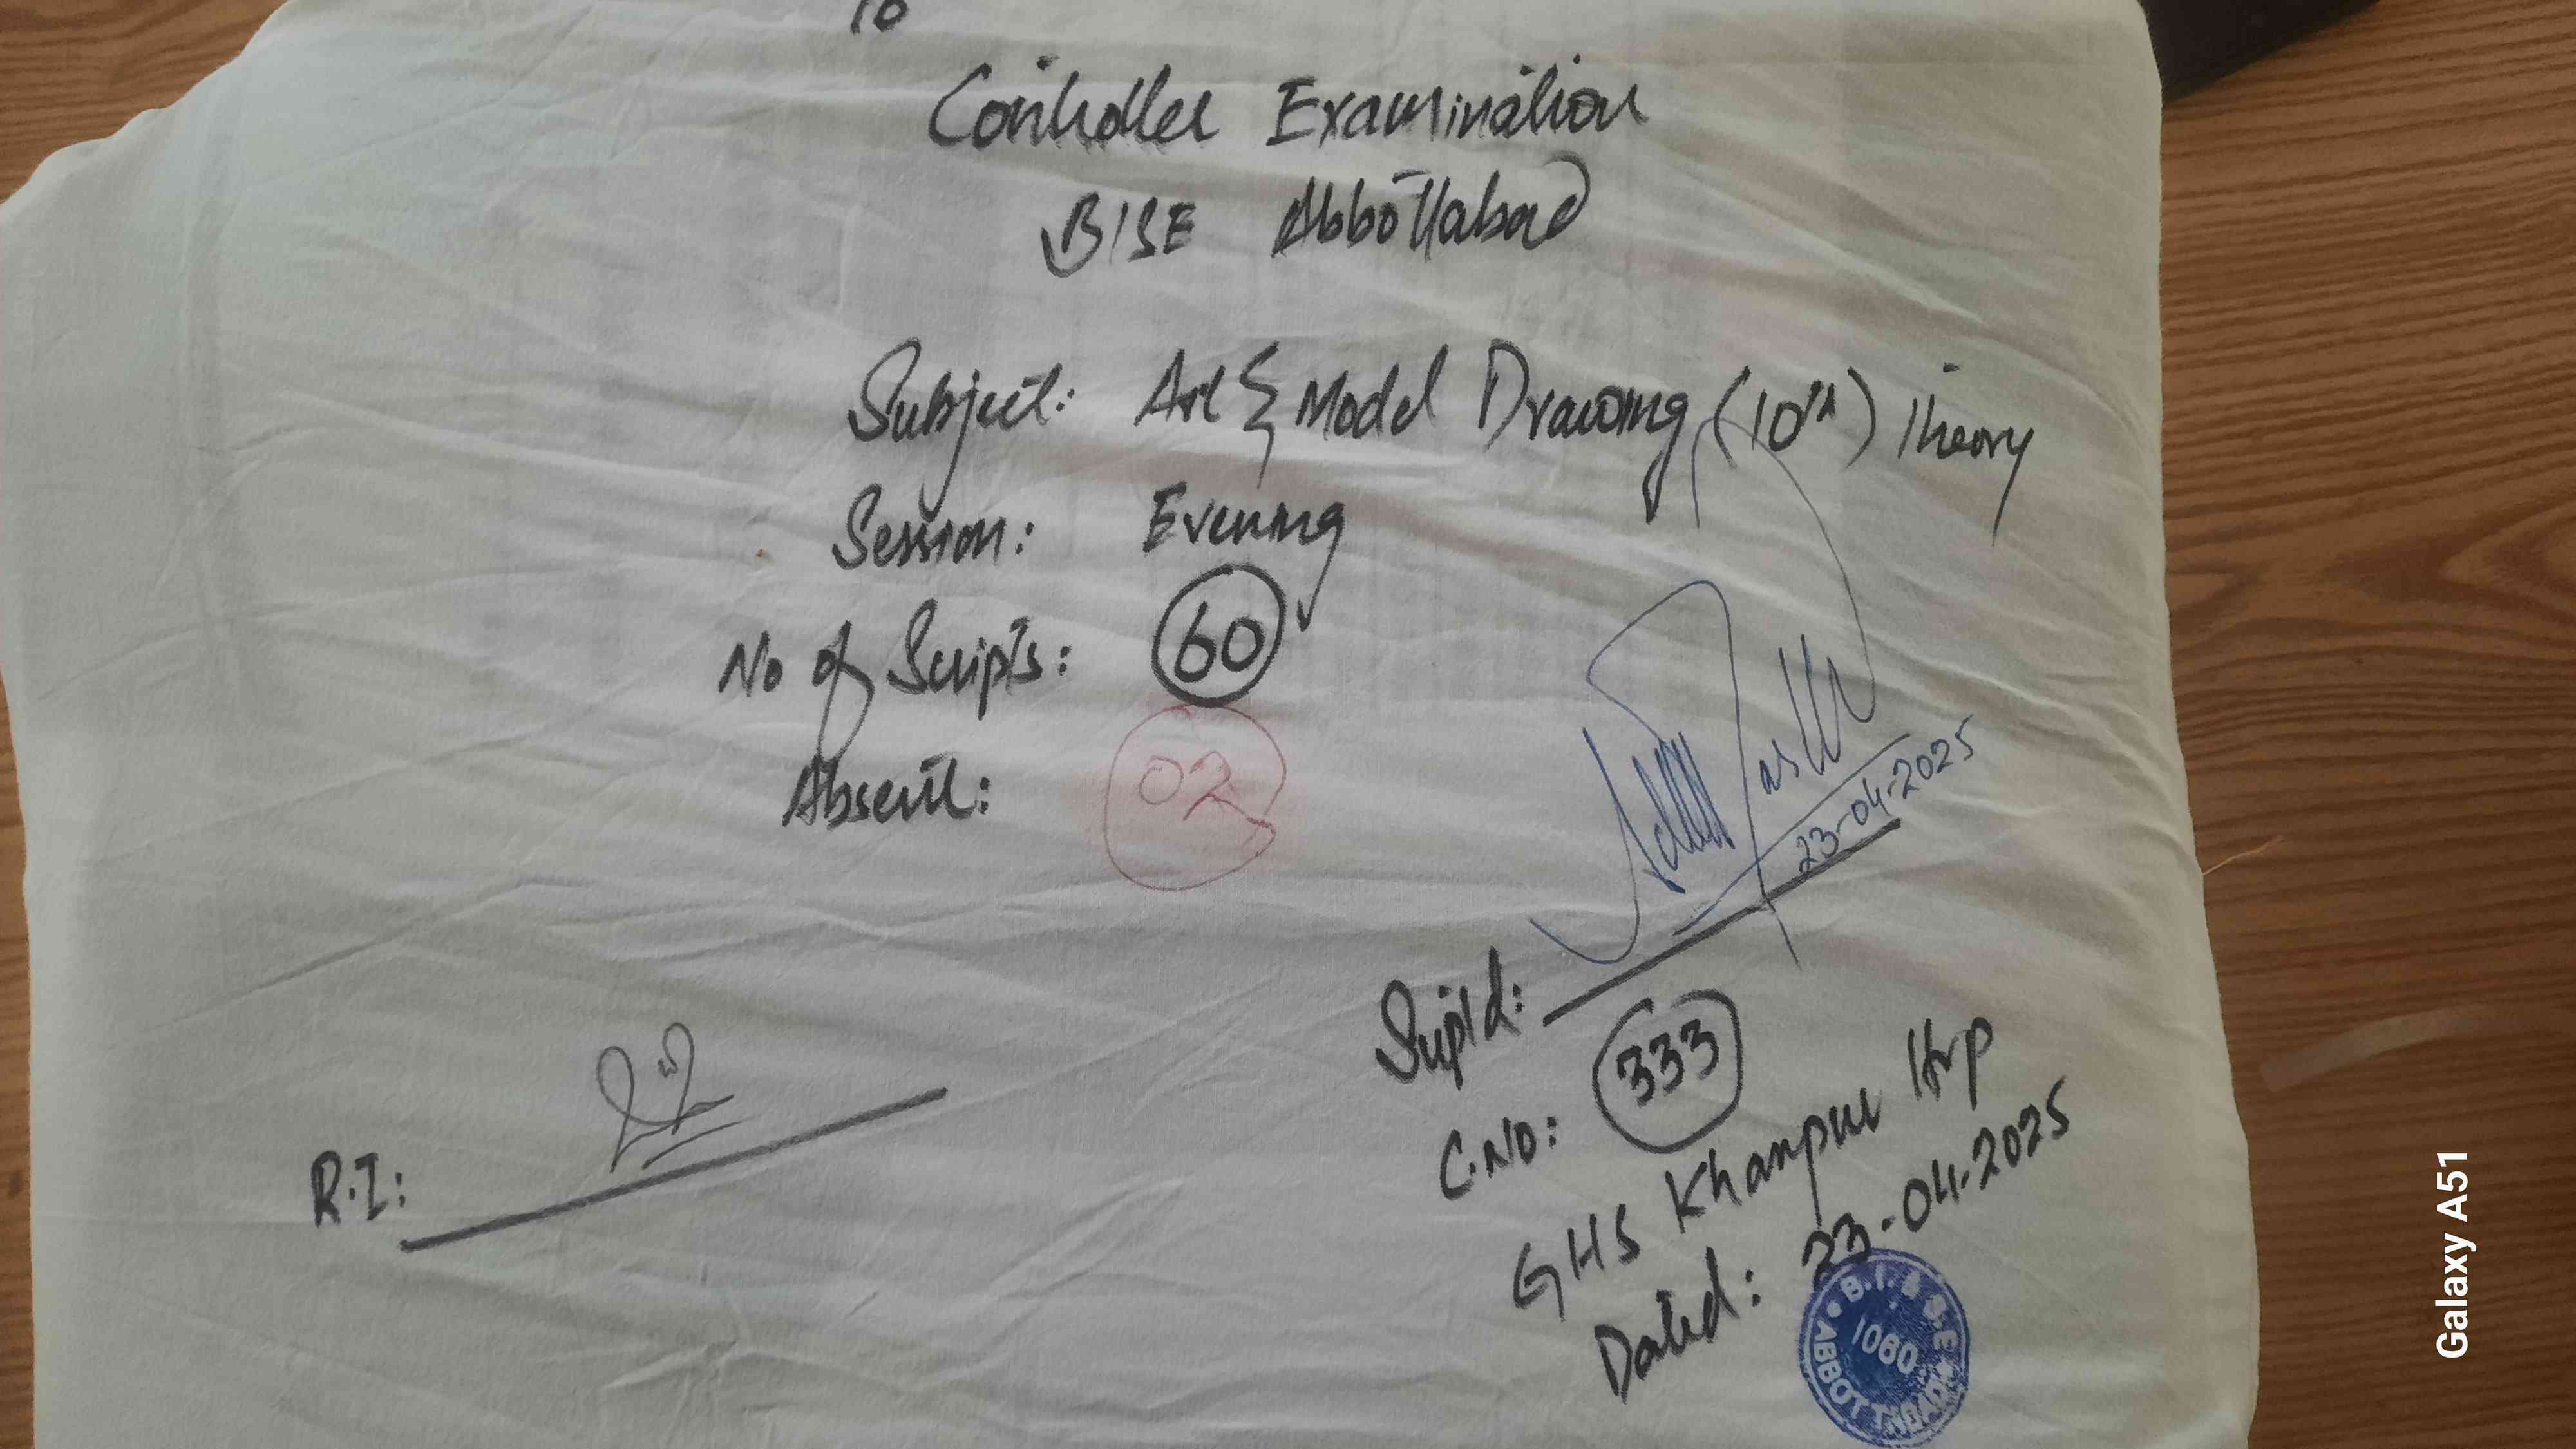 To
Controller Examination
BISE Abbottabad
Subject: Art & Model Drawing (10th) Theory
Session: Evening
No of Scripts: 60
Absent: 02
23-04-2025
Suptd:
C.No: 333
GHS Khanpur Hrp
Dated: 23-04-2025
R.I:
B.I.& S.E ABBOTTABAD
1060
Galaxy A51